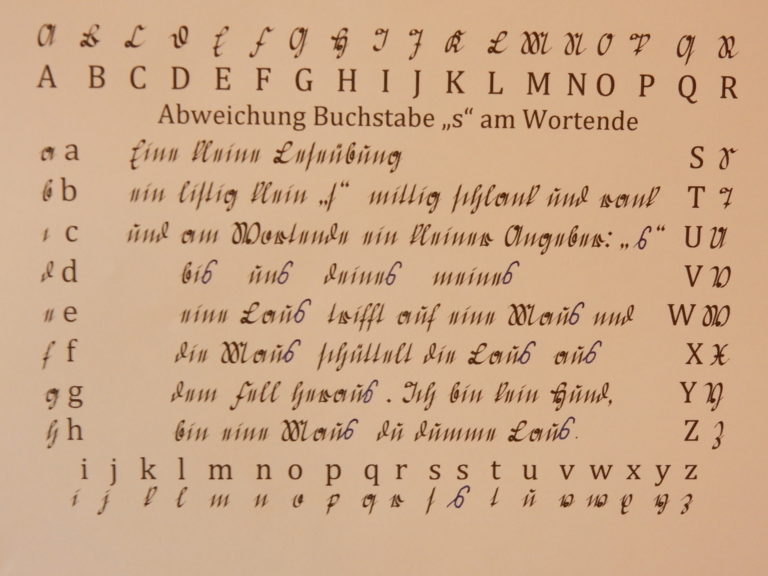 A B C D E F G H I J K L M N O P Q R
A B C D E F G H I J K L M N O P Q R
Abweichung Buchstabe „s“ am Wortende
a a Eine kleine Leseübung S S
b b ein listig klein „s“ mittig schlank und rank T T
c c und am Wortende ein kleiner Angeber: „s“ U U
d d bis uns deines meines V V
e e eine Laus trifft auf eine Maus und W W
f f die Maus schüttelt die Laus aus X X
g g dem Fell heraus. Ich bin kein Hund, Y Y
h h bin eine Maus du dumme Laus. Z Z
i j k l m n o p q r s s t u v w x y z
i j k l m n o p q r s s t u v w x y z